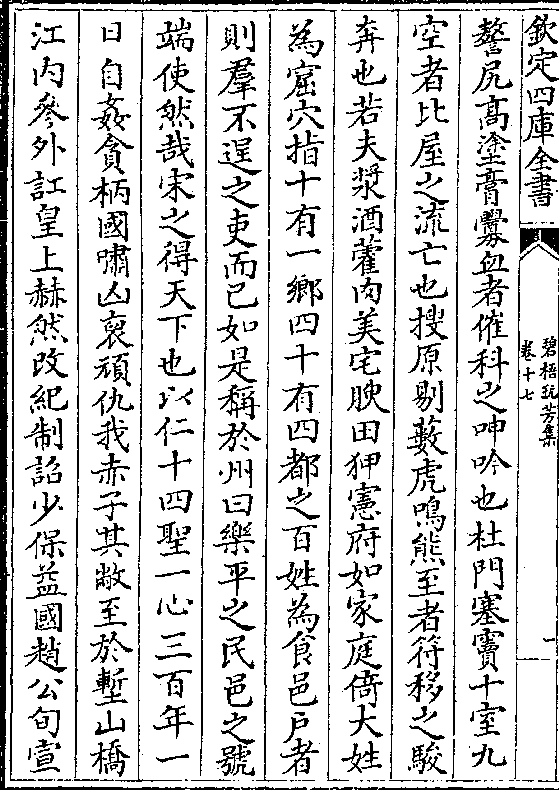 欽定四庫全書
碧梧玩芳集
卷十七
一
鼛尻高塗膏釁血者催科之呻吟也杜門塞竇十室九
空者比屋之流亡也搜原剔藪虎鳴熊至者符移之駿
奔也若夫漿酒藿肉美宅腴田狎憲府如家庭倚大姓
為窟穴指十有一鄉四十有四都之百姓為食邑户者
則羣不逞之吏而已如是稱於州曰樂平之民邑之號
端使然哉宋之得天下也以仁十四聖一心三百年一
日自姦貪柄國嘯凶裒頑仇我赤子其敝至於塹山橋
江内參外訌皇上赫然改紀制詔少保益國趙公旬宣